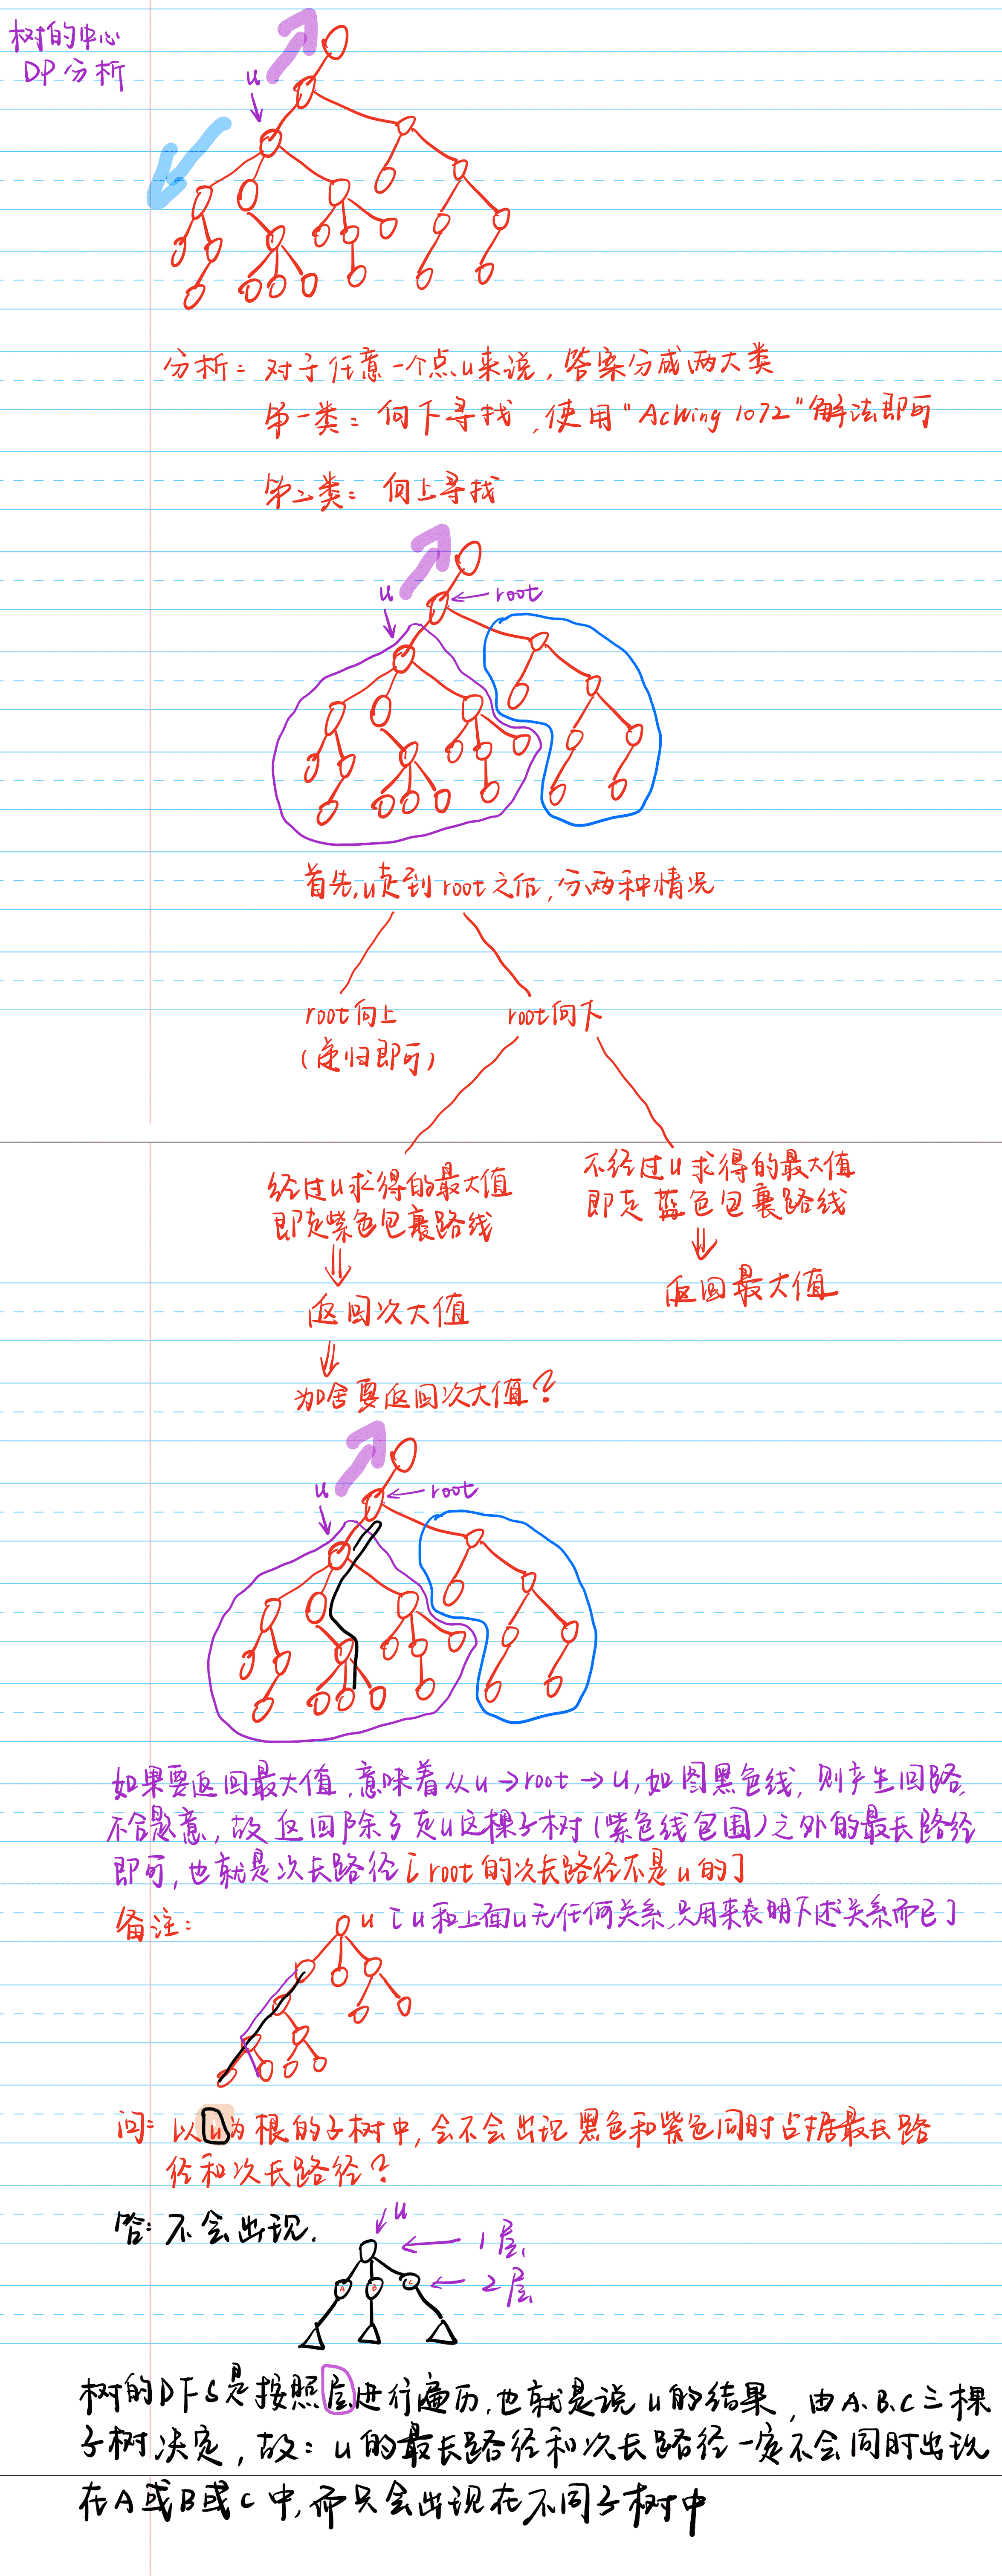 树的中心
DP分析
u
分析: 对于任意一个点u来说, 答案分成两大类
第一类: 向下寻找, 使用"AcWing 1072"解法即可
第二类: 向上寻找
u
root
首先,u走到root之后,分两种情况
root向上
(递归即可)
root向下
经过u求得的最大值
即走紫色包裹路线
返回次大值
为啥要返回次大值?
不经过u求得的最大值
即走蓝色包裹路线
返回最大值
u
root
如果要返回最大值,意味着从u→root→u,如图黑色线,则产生回路,
不合题意,故返回除了走u这棵子树(紫色线包围)之外的最长路径
即可,也就是次长路径[root的次长路径不是u的]
备注:
u [u和上面u无任何关系,只用来表明下述关系而已]
问: 以u为根的子树中,会不会出现黑色和紫色同时占据最长路
径和次长路径?
答: 不会出现.
u
1层
A B C
2层
树的DFS是按照层进行遍历,也就是说u的结果,由A.B.C三棵
子树决定,故: u的最长路径和次长路径一定不会同时出现
在A或B或C中,而只会出现在不同子树中